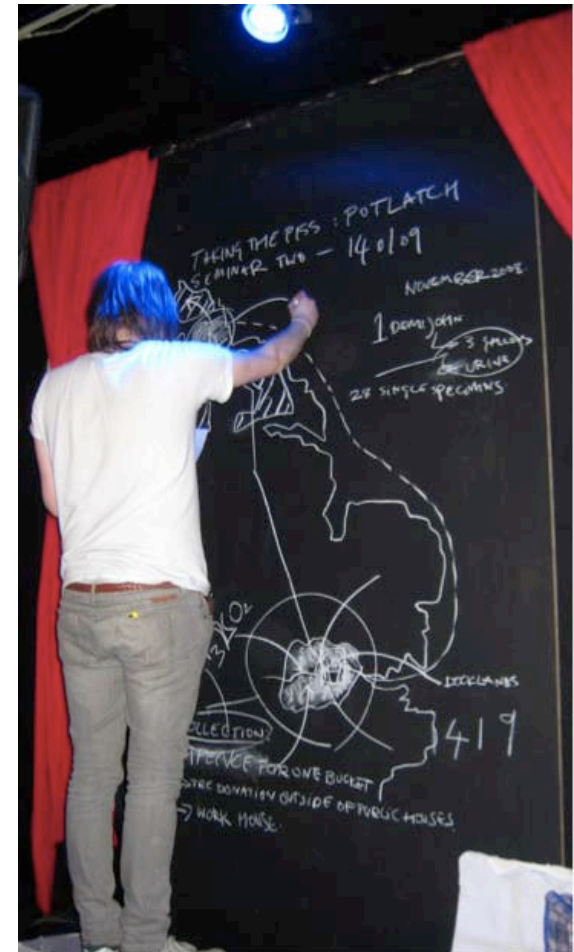 TAKING THE PISS : POTLATCH
SEMINAR TWO — 140109
NOVEMBER 2008.
1 DEMIJOHN
3 GALLONS
URINE
28 SINGLE SPECIMINS
O2
DICKLANDS
1419
OLLECTION?
PENCE FOR ONE BUCKET
DONATION OUTSIDE OF PUBLIC HOUSES.
→ WORK HOUSE.